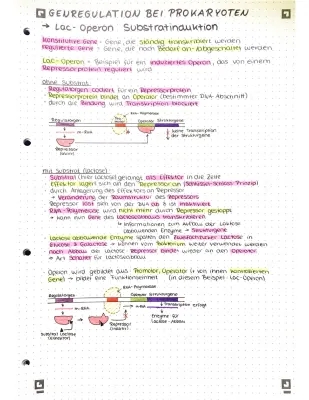 GENREGULATION BEI PROKARYOTEN
→ Lac-Operon Substratinduktion
konstitutive Gene - Gene, die ständig transkribiert werden
regulierte Gene - Gene, die nach Bedarf an-/abgeschaltet werden
Lac-Operon - Beispiel für ein induziertes Operon, das von einem
Repressorprotein reguliert wird
ohne Substrat
- Regulatorgen codiert für ein Repressorprotein
- Repressorprotein bindet an Operator (bestimmter DNA-Abschnitt)
- durch die Bindung wird Transkription blockiert
RNA-Polymerase
Regulatorgen Operator Strukturgene
m-RNA
keine Transkription
der Strukturgene
Repressor
(aktiv)
mit Substrat (Lactose)
- Substrat (hier Lactose) gelangt als Effektor in die Zelle
- Effektor lagert sich an den Repressor an (Schlüssel-Schloss-Prinzip)
- durch Anlagerung des Effektors an Repressor
→ Veränderung der Raumstruktur des Repressors
- Repressor löst sich von der DNA ab & ist inaktiviert
- RNA-Polymerase wird nicht mehr durch Repressor gestoppt
→ kann nun Gene des Lactoseabbaus transkribieren
→ Informationen zum Aufbau der Lactose
abbauenden Enzyme → Strukturgene
- Lactose abbauende Enzyme spalten den Zweifachzucker Lactose in
Glucose & Galactose → können vom Bakterium weiter verwendet werden
- nach Abbau der Lactose: Repressor bindet wieder an den Operator
→ Art Schalter für Lactoseabbau
- Operon wird gebildet aus: Promotor, Operator & von ihnen kontrollierten
Gene → bilden eine Funktionseinheit (in diesem Beispiel Lac-Operon)
RNA-Polymerase
Regulatorgen Operator Strukturgene
m-RNA
m-RNA
Transkription erfolgt
Substrat Lactose
(Effektor)
Repressor
(inaktiv)
Enzyme für
Lactose-Abbau